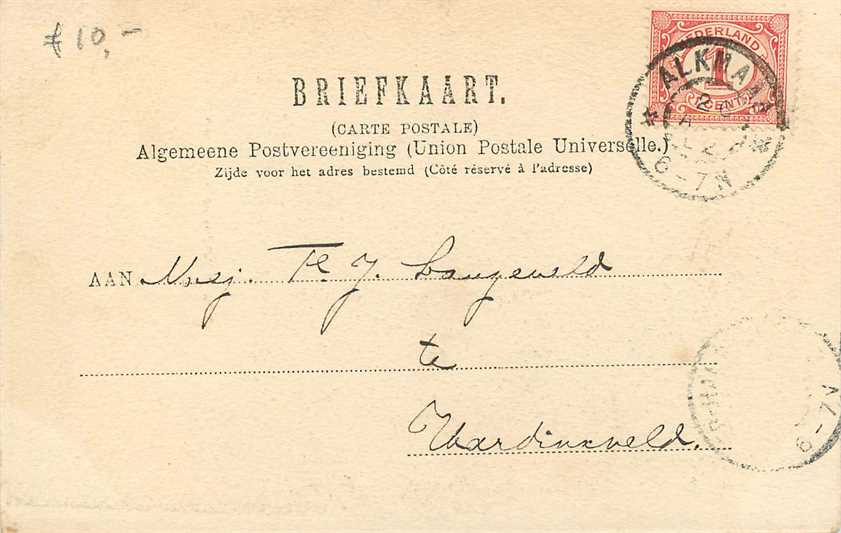 ƒ 10,-
NEDERLAND
1
CENT
ALKMAAR
6-7N
BRIEFKAART.
(CARTE POSTALE)
Algemeene Postvereeniging (Union Postale Universelle.)
Zijde voor het adres bestemd (Côté réservé à l'adresse)
AAN Mej. J. Langeveld
te
Hardinxveld.
6-7N